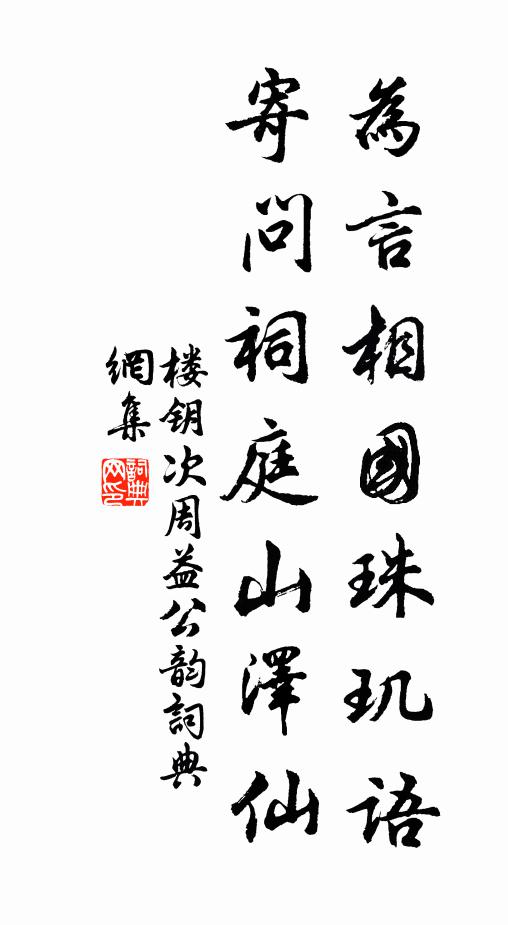 為言相國珠玑語
寄問祠庭山澤仙
楼钥次周益公韵詞典
網集
詞典
网印